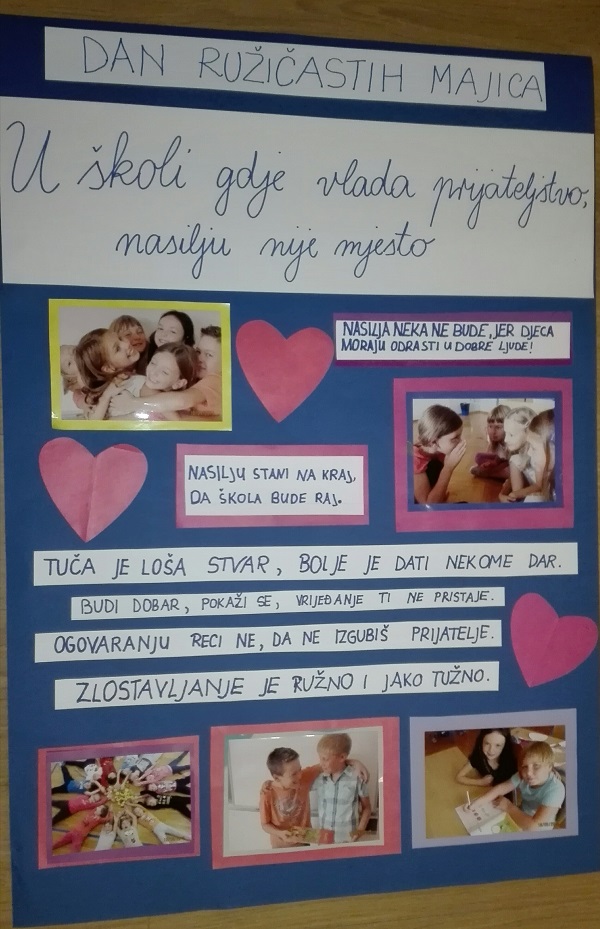 DAN RUŽIČASTIH MAJICA
U školi gdje vlada prijateljstvo,
nasilju nije mjesto
NASILJA NEKA NE BUDE, JER DJECA
MORAJU ODRASTI U DOBRE LJUDE!
NASILJU STANI NA KRAJ,
DA ŠKOLA BUDE RAJ.
TUČA JE LOŠA STVAR, BOLJE JE DATI NEKOME DAR.
BUDI DOBAR, POKAŽI SE, VRIJEĐANJE TI NE PRISTAJE.
OGOVARANJU RECI NE, DA NE IZGUBIŠ PRIJATELJE.
ZLOSTAVLJANJE JE RUŽNO I JAKO TUŽNO.